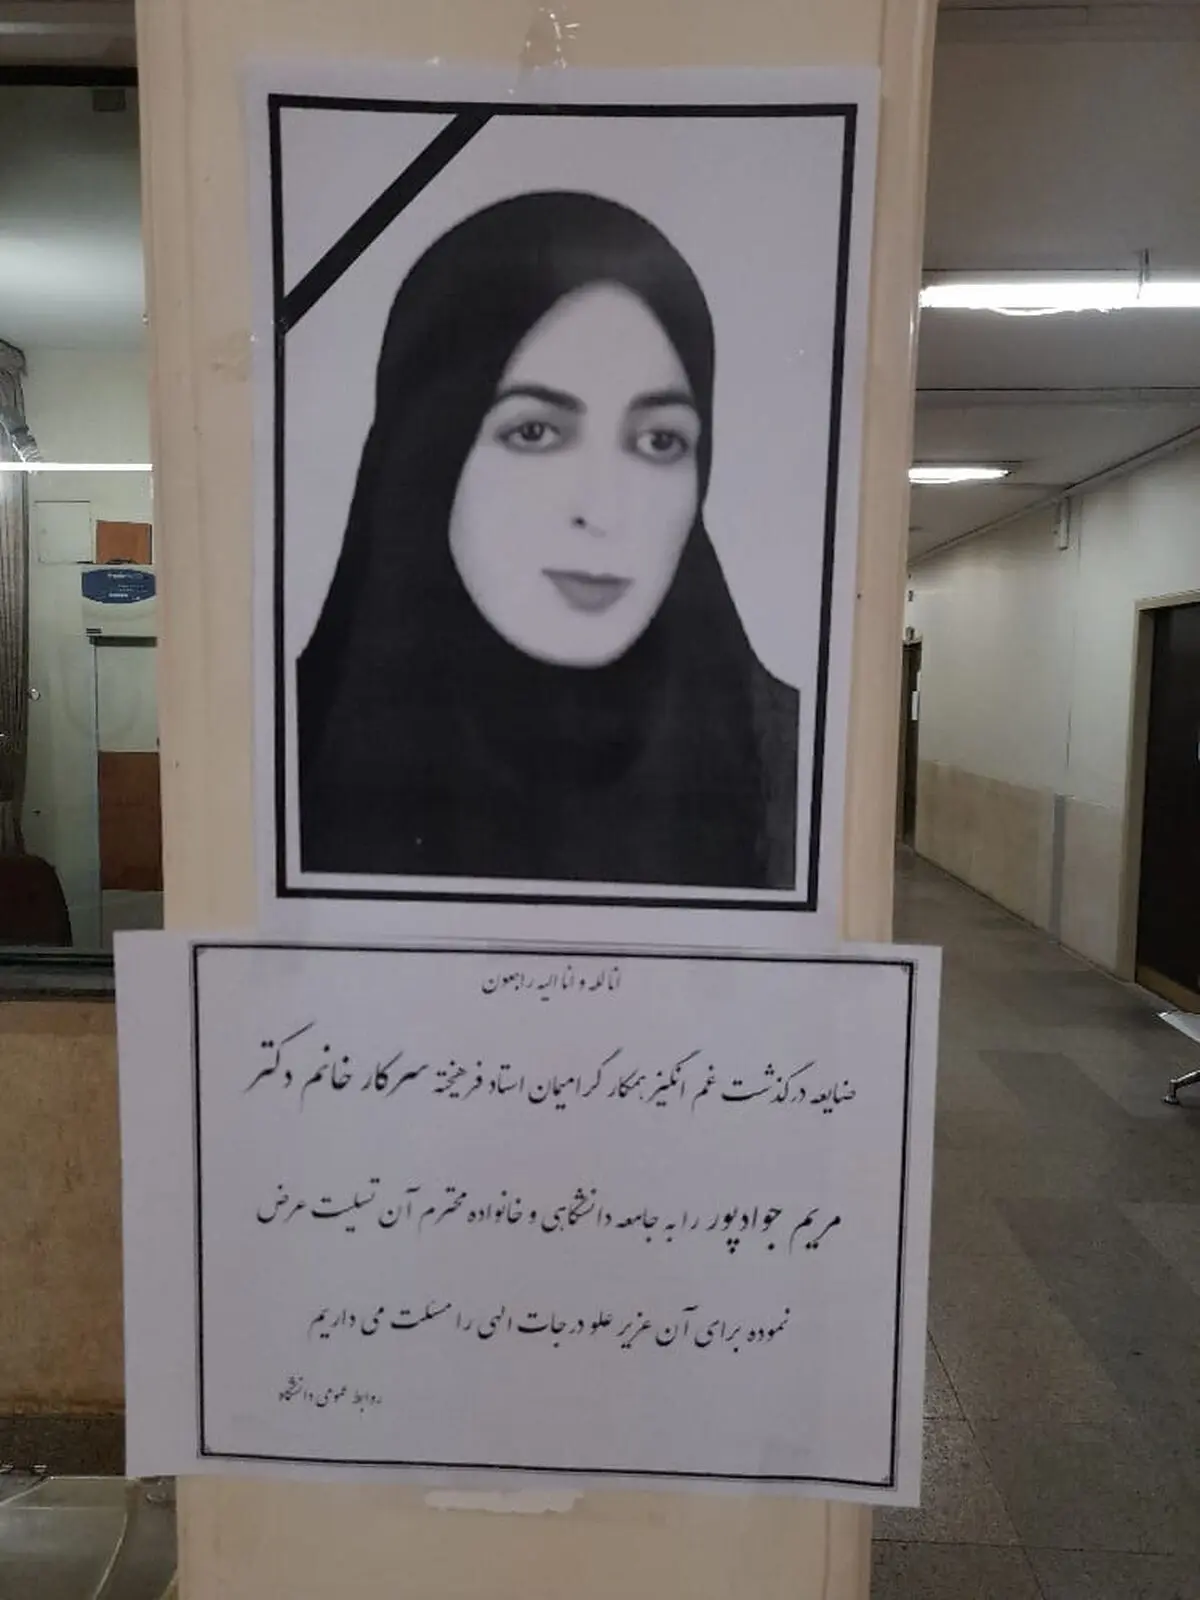 انا لله و انا الیه راجعون
ضایعه درگذشت غم انگیز همکار گرامیمان استاد فرهیخته سرکار خانم دکتر
مریم جوادپور را به جامعه دانشگاهی و خانواده محترم آن تسلیت عرض
نموده برای آن عزیز علو درجات الهی را مسئلت می داریم
روابط عمومی دانشگاه